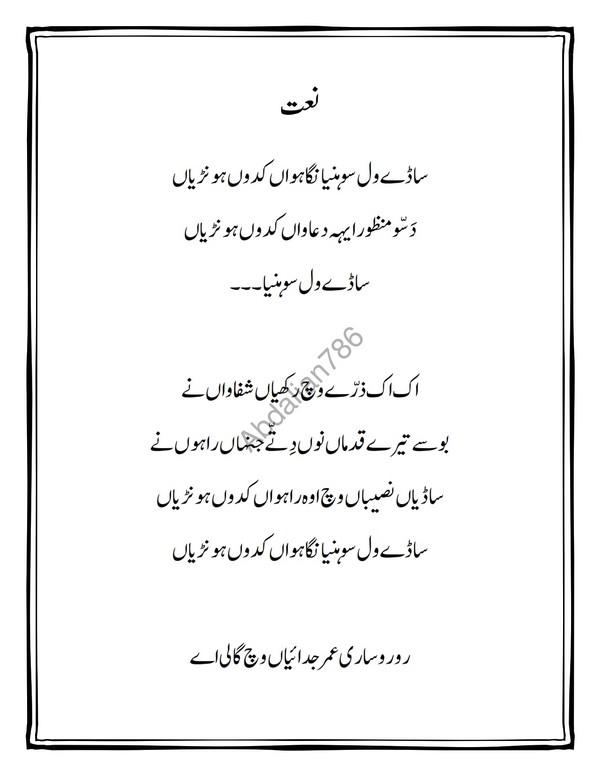 نعت
ساڈے ول سوہنیا نگاہواں کدوں ہونڑیاں
دَسّو منظور ایہہ دعاواں کدوں ہونڑیاں
ساڈے ول سوہنیا۔۔۔
اک اک ذرّے وچ رکھیاں شفاواں نے
بوسے تیرے قدماں نوں دِتّے جنہاں راہوں نے
ساڈیاں نصیباں وچ اوہ راہواں کدوں ہونڑیاں
ساڈے ول سوہنیا نگاہواں کدوں ہونڑیاں
رو رو ساری عمر جدائیاں وچ گالی اے
Abdalian786